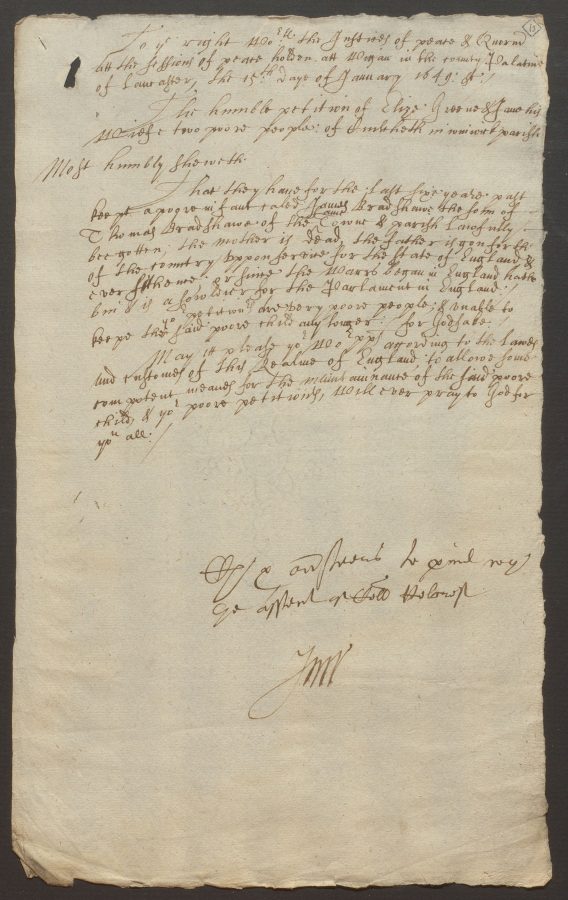 To ye right Wo:ll the Justices of peace & Quorum
att the sessions of peace holden att Wigan in the county Palatine
of Lancaster, the 15th daye of January 1649: &c/
The humble petition of Elize: Greene & Jane his
Wiefe two poore people: of in parish
Most humbly sheweth
That they have for the last five yeares past
keepe a poore infant caled James Bradshawe the sonn of
Thomas Bradshawe of the same Towne & parish lawfully
begotten, the mother is dead, the father is gon forth
of the countrey uppon service for the state of England &
ever sithence & since the Warrs began in England hath
bin & is a sowldier for the Parlament in England:/
yor petitionrs are very poore people; & unable to
keepe the said poore child any longer: for Godsake:/
May it please yor Wo:pps according to the lawes
and customes of this Realme of England, to allowe some
competent meanes for the maintainance of the said poore
child, & yor poore petitionrs, Will ever pray to God for
you all:/
ordr
assent of Holcroft